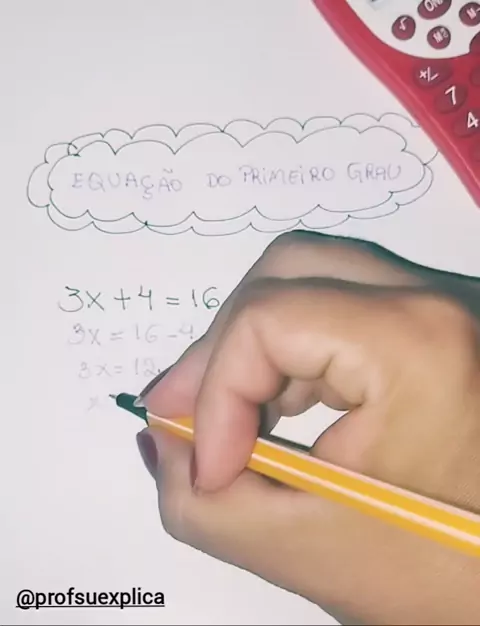 ON/C
√
M-
+/-
7
4
EQUAÇÃO DO PRIMEIRO GRAU
3x + 4 = 16
3x = 16 - 4
3x = 12
x
@profsuexplica